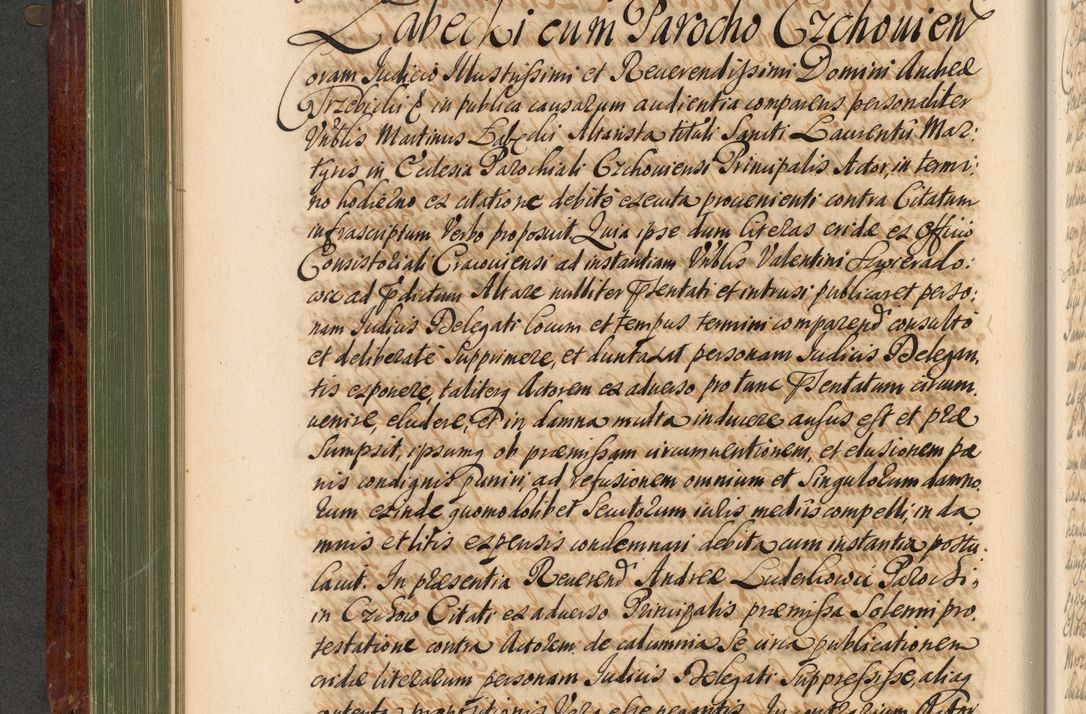 Zabecki cum Parocho Czchovien
Coram Iudicio Illustrissimi et Reverendissimi Domini Andreæ
Trzebicki & in publica causarum audientia comparens personaliter
Vnblis Martinus Zabecki Altarista tituli Sancti Laurentii Mar:
tyris in Ecclesia Parochiali Czchoviensi Principalis Actor, in termi:
no hodierno ex citatione debite executa provenienti contra Citatum
infrascriptum Verbo proposuit, Quia ipse dum literas cridæ ex officio
Consistoriali Cracoviensi ad instantiam Vnblis Valentini
wic ad prdictum Altare nulliter prsentati et intrusi publicaret perso:
nam Iudicis Delegati locum et tempus termini comparend consulto
et deliberate supprimere, et duntaxat personam Iudicis Delegan
tis exponere, taliterq Actorem ex adverso pro tunc prsentatum circum
venire, eludere, et in damna multa inducere ausus est et præ
sumpsit, ipsumq ob præmissam circumventionem, et elusionem pæ
nis condignis puniri, ad refusionem omnium et singulorum damno
rum exinde quomodolibet secutorum iuris mediis compelli, in da
mnis et litis expensis condemnari debita cum instantia postu
lavit. In præsentia Reverend Andreæ Luderkowic Parochi
in Czchow Citati ex adverso Principalis præmissa Solenni pro
testatione contra Actorem de calumnia se circa publicationem
cridæ literarum personam Iudicis Delegati suppressisse, aliaq
contenta propositionis Vera esse negantis. In contrarium Actor